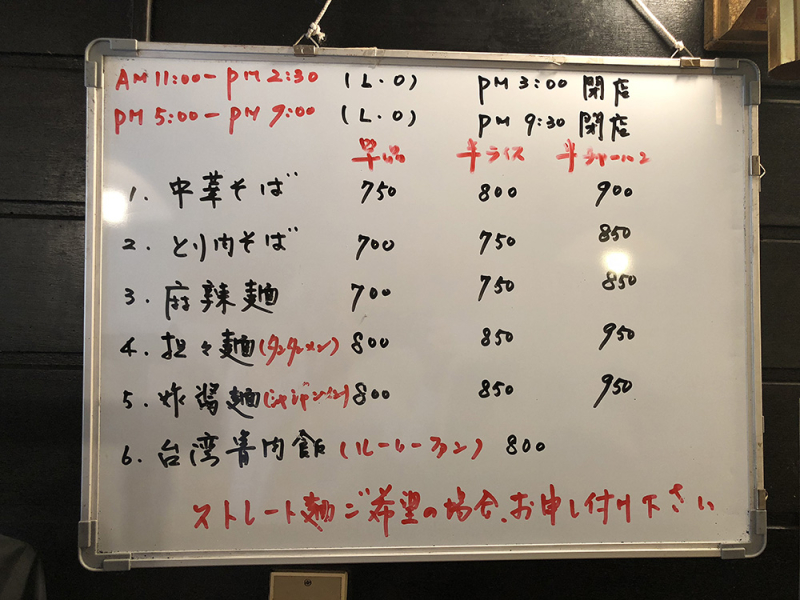 AM 11:00-PM 2:30 (L.O) PM 3:00 閉店
PM 5:00-PM 9:00 (L.O) PM 9:30 閉店
単品 半ライス 半チャーハン
1. 中華そば 750 800 900
2. とり肉そば 700 750 850
3. 麻辣麺 700 750 850
4. 担々麺(タンタンメン) 800 850 950
5. 炸醤麺(ジャージャンメン) 800 850 950
6. 台湾青肉飯(ルーローファン) 800
ストレート麺ご希望の場合、お申し付け下さい